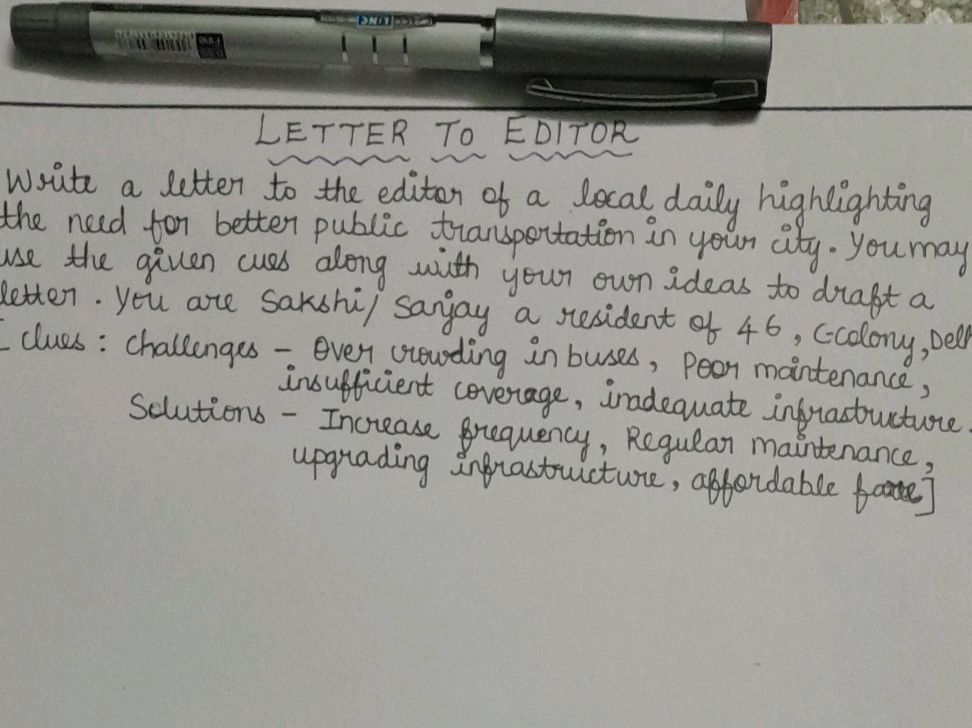 LINC
Fine
LETTER TO EDITOR
Write a letter to the editor of a local daily highlighting
the need for better public transportation in your city. You may
use the given cues along with your own ideas to draft a
letter. You are Sakshi/ Sanjay a resident of 46, C-colony, Delh
[ clues : Challenges - Over crowding in buses, Poor maintenance,
insufficient coverage, inadequate infrastructure.
Solutions - Increase frequency, Regular maintenance,
upgrading infrastructure, affordable fare]